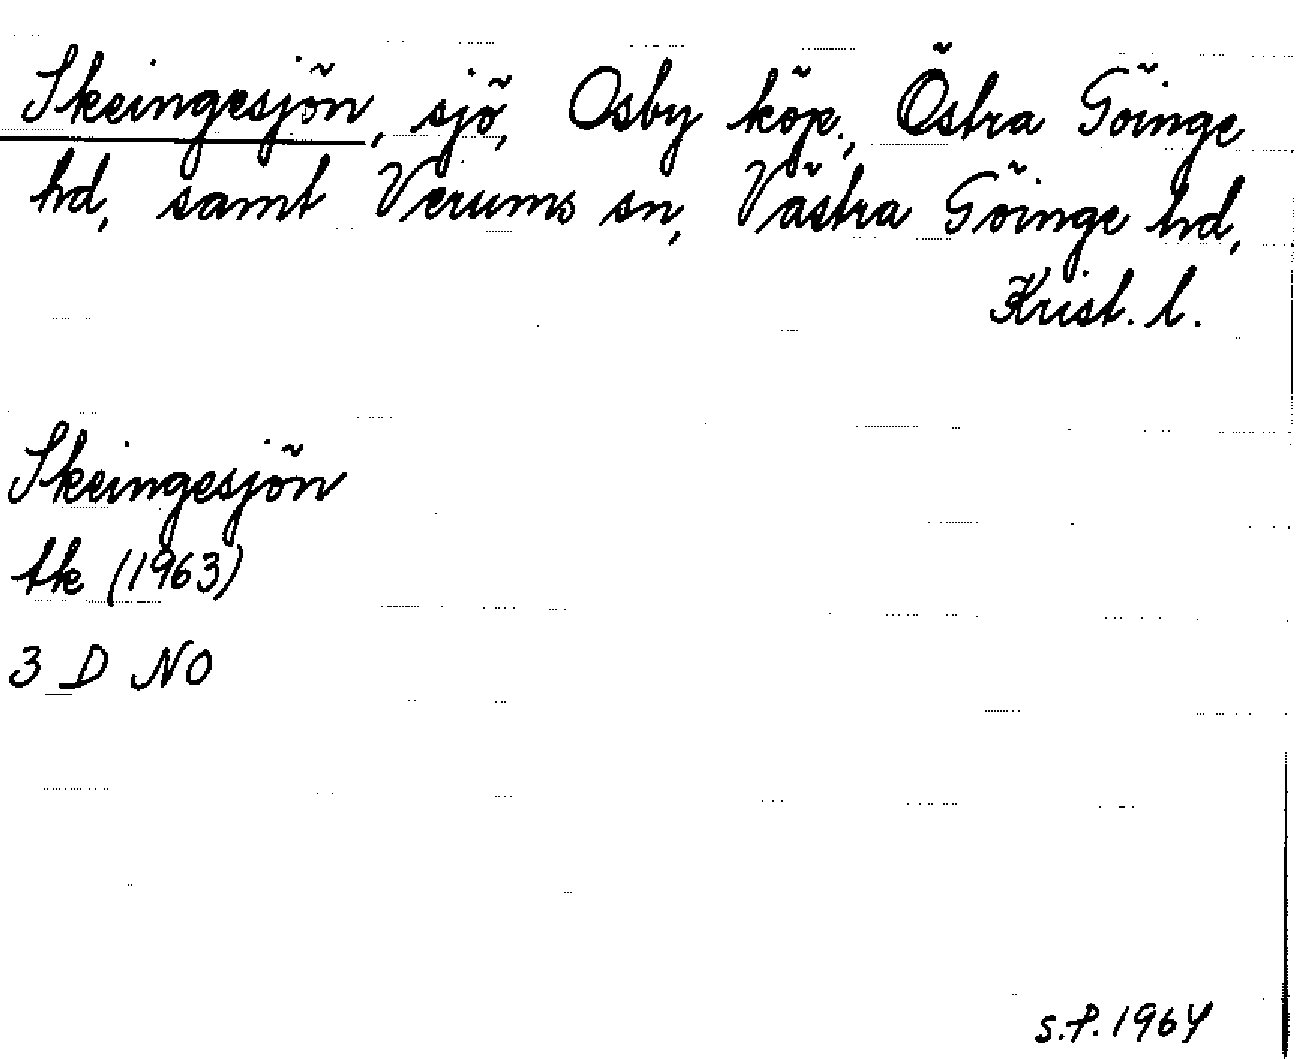 Skeingesjön, sjö, Osby köp., Östra Göinge
hd, samt Verums sn, Västra Göinge hd,
Krist. l.
Skeingesjön
tk (1963)
3 D NO
s.f. 1964